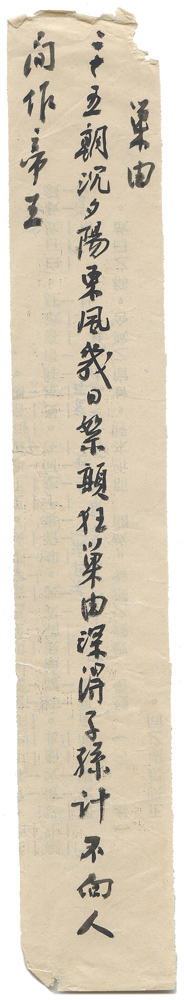 巢由
二十五朝沉夕陽東風幾日禁顛狂巢由深得子孫計不向人
間作帝王